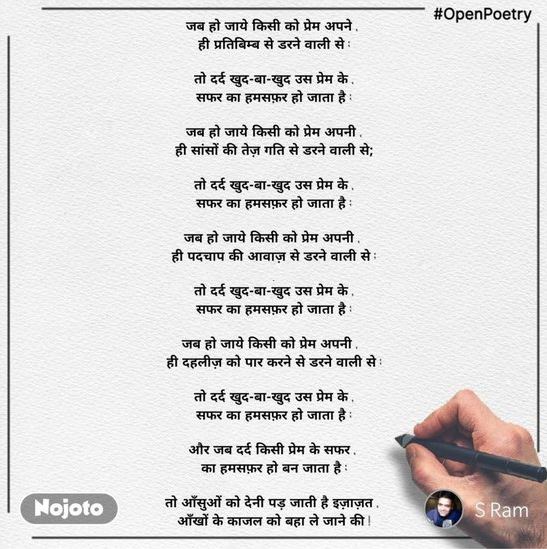 #OpenPoetry
जब हो जाये किसी को प्रेम अपने,
ही प्रतिबिम्ब से डरने वाली से;
तो दर्द खुद-बा-खुद उस प्रेम के,
सफर का हमसफ़र हो जाता है;
जब हो जाये किसी को प्रेम अपनी,
ही सांसों की तेज़ गति से डरने वाली से;
तो दर्द खुद-बा-खुद उस प्रेम के,
सफर का हमसफ़र हो जाता है;
जब हो जाये किसी को प्रेम अपनी,
ही पदचाप की आवाज़ से डरने वाली से;
तो दर्द खुद-बा-खुद उस प्रेम के,
सफर का हमसफ़र हो जाता है;
जब हो जाये किसी को प्रेम अपनी,
ही दहलीज़ को पार करने से डरने वाली से;
तो दर्द खुद-बा-खुद उस प्रेम के,
सफर का हमसफ़र हो जाता है;
और जब दर्द किसी प्रेम के सफर,
का हमसफ़र हो बन जाता है;
तो आँसुओं को देनी पड़ जाती है इज़ाज़त,
आँखों के काजल को बहा ले जाने की!
Nojoto
S Ram